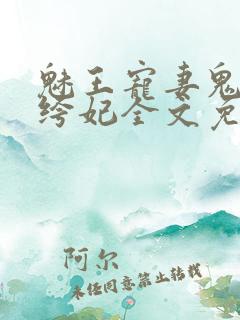 魅王寵妻鬼
绔妃全文免
阿尔
未经同意禁止转载